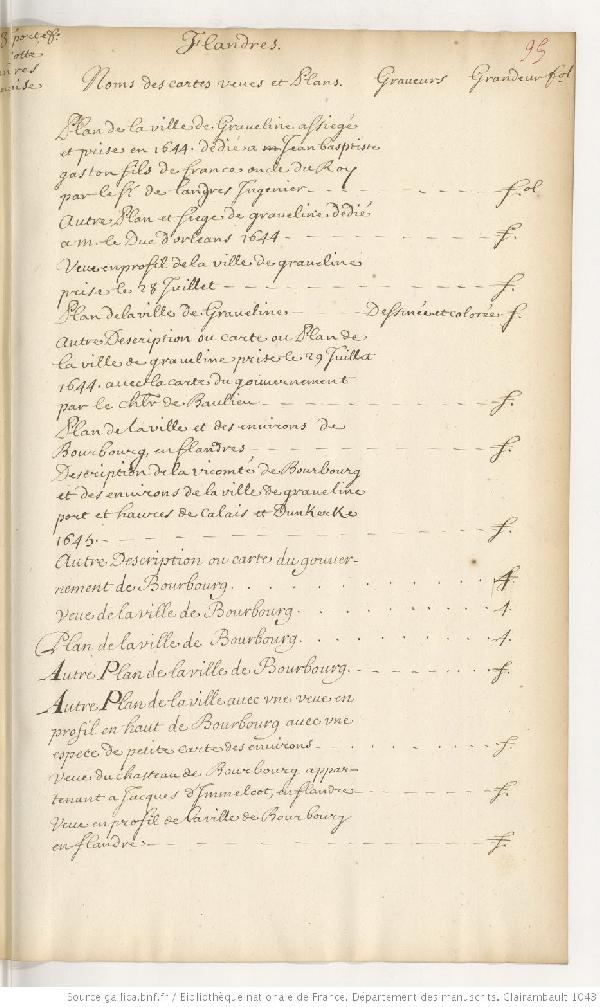 Flandres.
95
Noms des cartes veues et Plans. Graveurs Grandeur fol
Plan de la ville de Graveline assiegé
et prise en 1644. dedié a m Jean baptiste
gaston fils de france oncle du Roy
par le Sr. de Langres Ingenier - - - fol
Autre Plan et siege de graveline dedié
a m. le Duc d'orleans 1644 - - - f.
Veue en profil de la ville de graveline
prise le 28 Juillet - - - f.
Plan de la ville de Graveline - - - Dessinée et colorée f.
Autre Description ou carte ou Plan de
la ville de graveline prise le 29 Juillet
1644. avec la carte du gouvernement
par le chlr de Baulieu - - - f.
Plan de la ville et des environs de
Bourbourg en flandres - - - f.
Description de la vicomté de Bourbourg
et des environs de la ville de graveline
port et havres de Calais et Dunkerke
1645. - - - f.
Autre Description ou carte du gouver-
nement de Bourbourg. . . . f.
veue de la ville de Bourbourg. . . . 4.
Plan de la ville de Bourbourg. . . . 4.
Autre Plan de la ville de Bourbourg. - - - f.
Autre Plan de la ville avec vne veue en
profil en haut de Bourbourg avec vne
espece de petite carte des environs. . . . f.
Veue du chasteau de Bourbourg appar-
tenant a Jacques d'Immeloot, en flandre - - - f.
Veue en profil de la ville de Bourbourg
en flandre. - - - f.
Source gallica.bnf.fr / Bibliothèque nationale de France. Département des manuscrits. Clairambault 1043